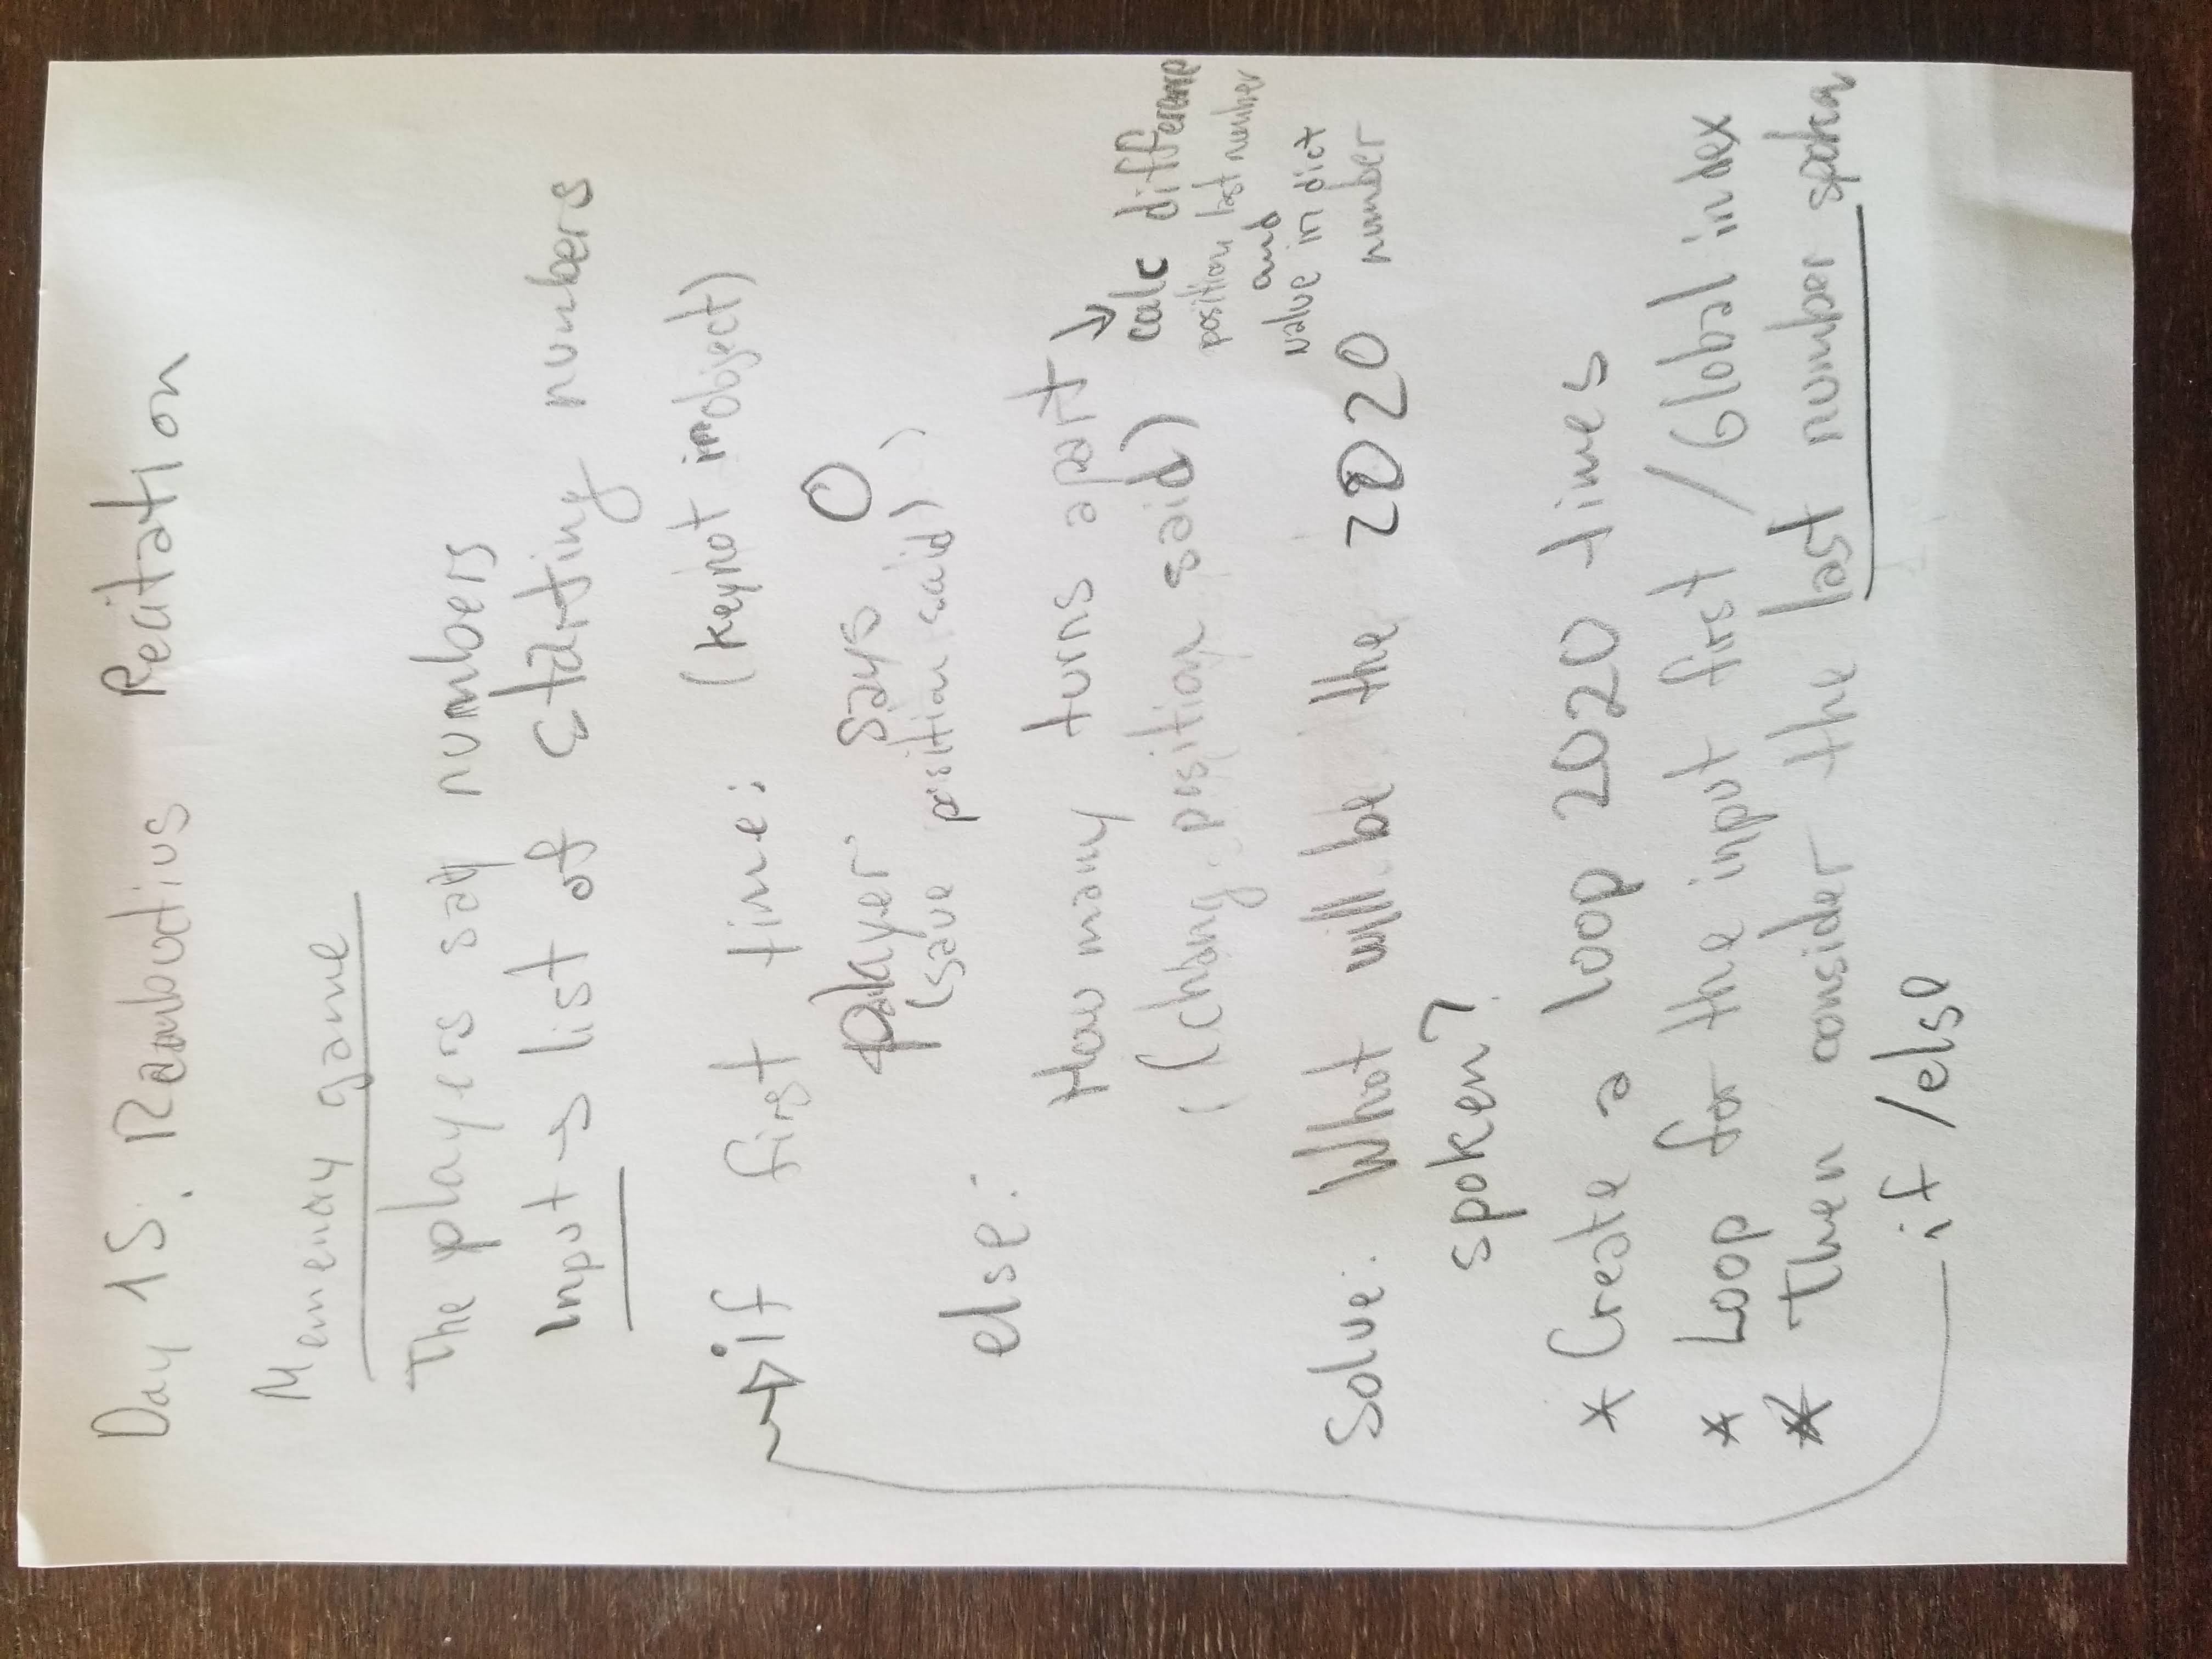 Day 15: Rambuctius Recitation
Memenory game
The players say numbers
Input → list of starting numbers
if first time: (key not in object)
player says 0
(save position said)
else:
How many turns apart ↓
(chang position said)
calc difference
position last number
and
value in dict
Solve: What will be the 2020 number
spoken?
* Create a loop 2020 times
* Loop for the input first / Global index
* Then consider the last number spoken
if /else